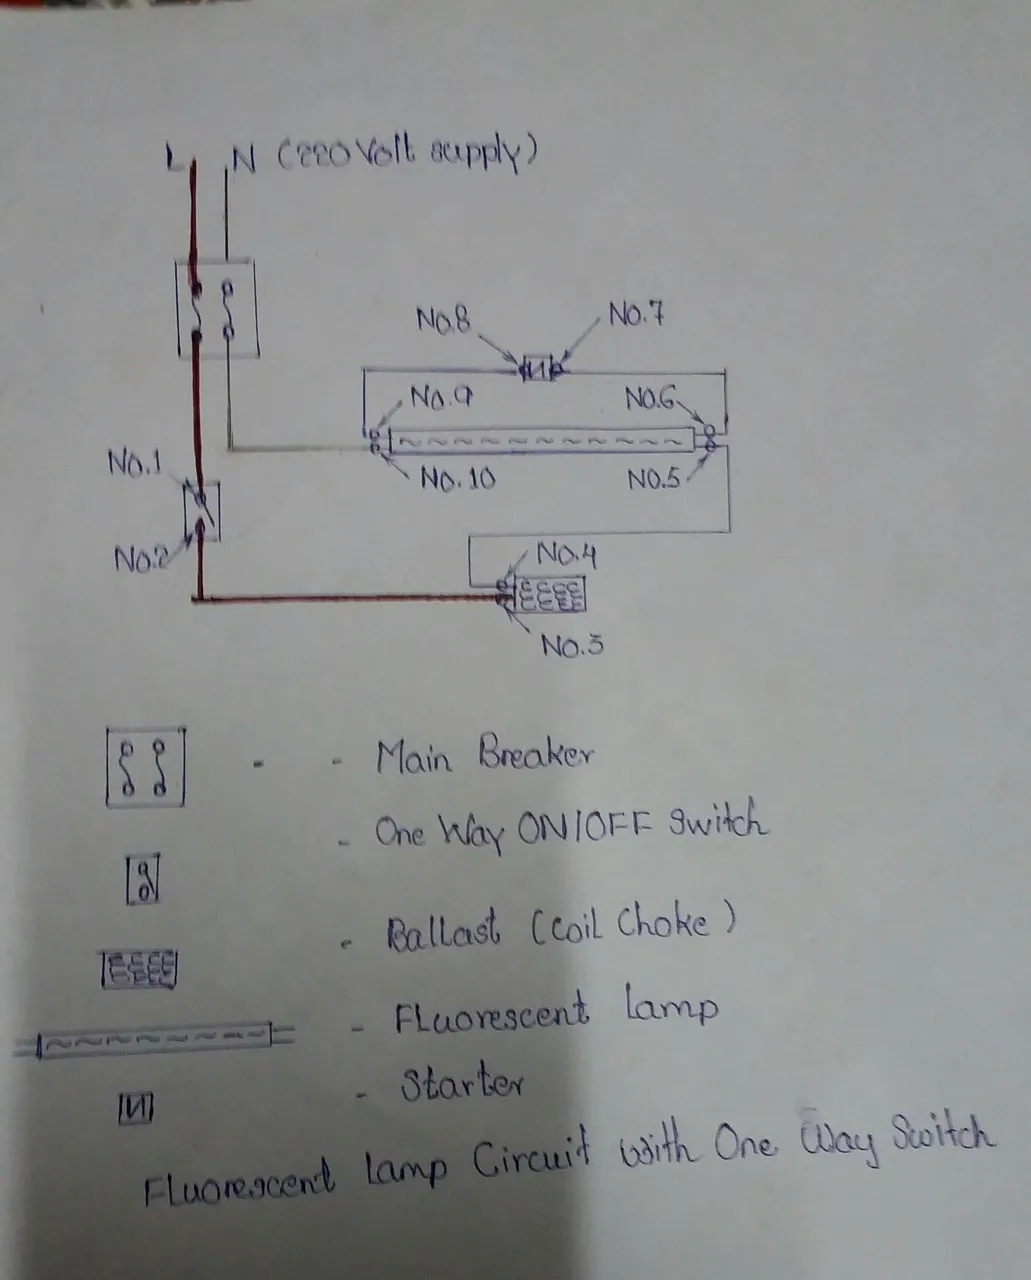 L N (220 Volt supply)
No.8 No.7
No.9 No.6
No.1 No.10 No.5
No.2 No.4
No.3
- - Main Breaker
- One Way ON/OFF Switch
- Ballast (Coil Choke)
- Fluorescent Lamp
- Starter
Fluorescent Lamp Circuit with One Way Switch